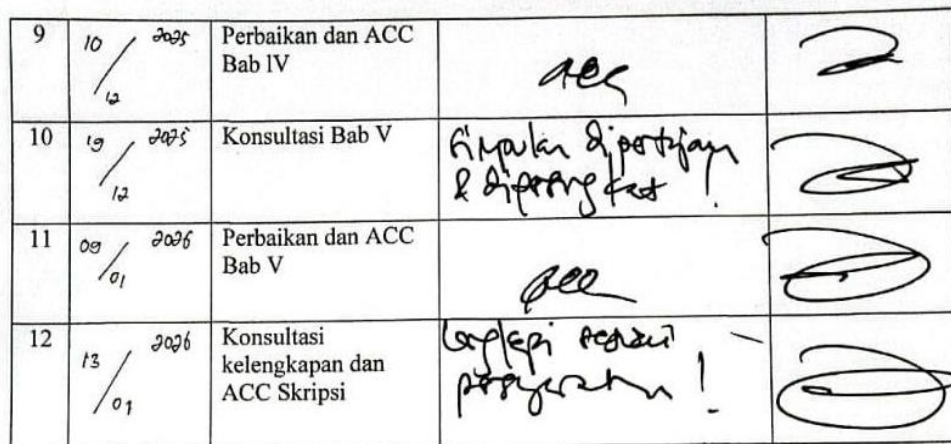 9
10 / 12 2025
Perbaikan dan ACC
Bab lV
ACC
10
19 / 12 2025
Konsultasi Bab V
Simpulan dipertajam
& dipersingkat !
11
09 / 01 2026
Perbaikan dan ACC
Bab V
ACC
12
13 / 01 2026
Konsultasi
kelengkapan dan
ACC Skripsi
Lengkapi sesuai
persyaratan !